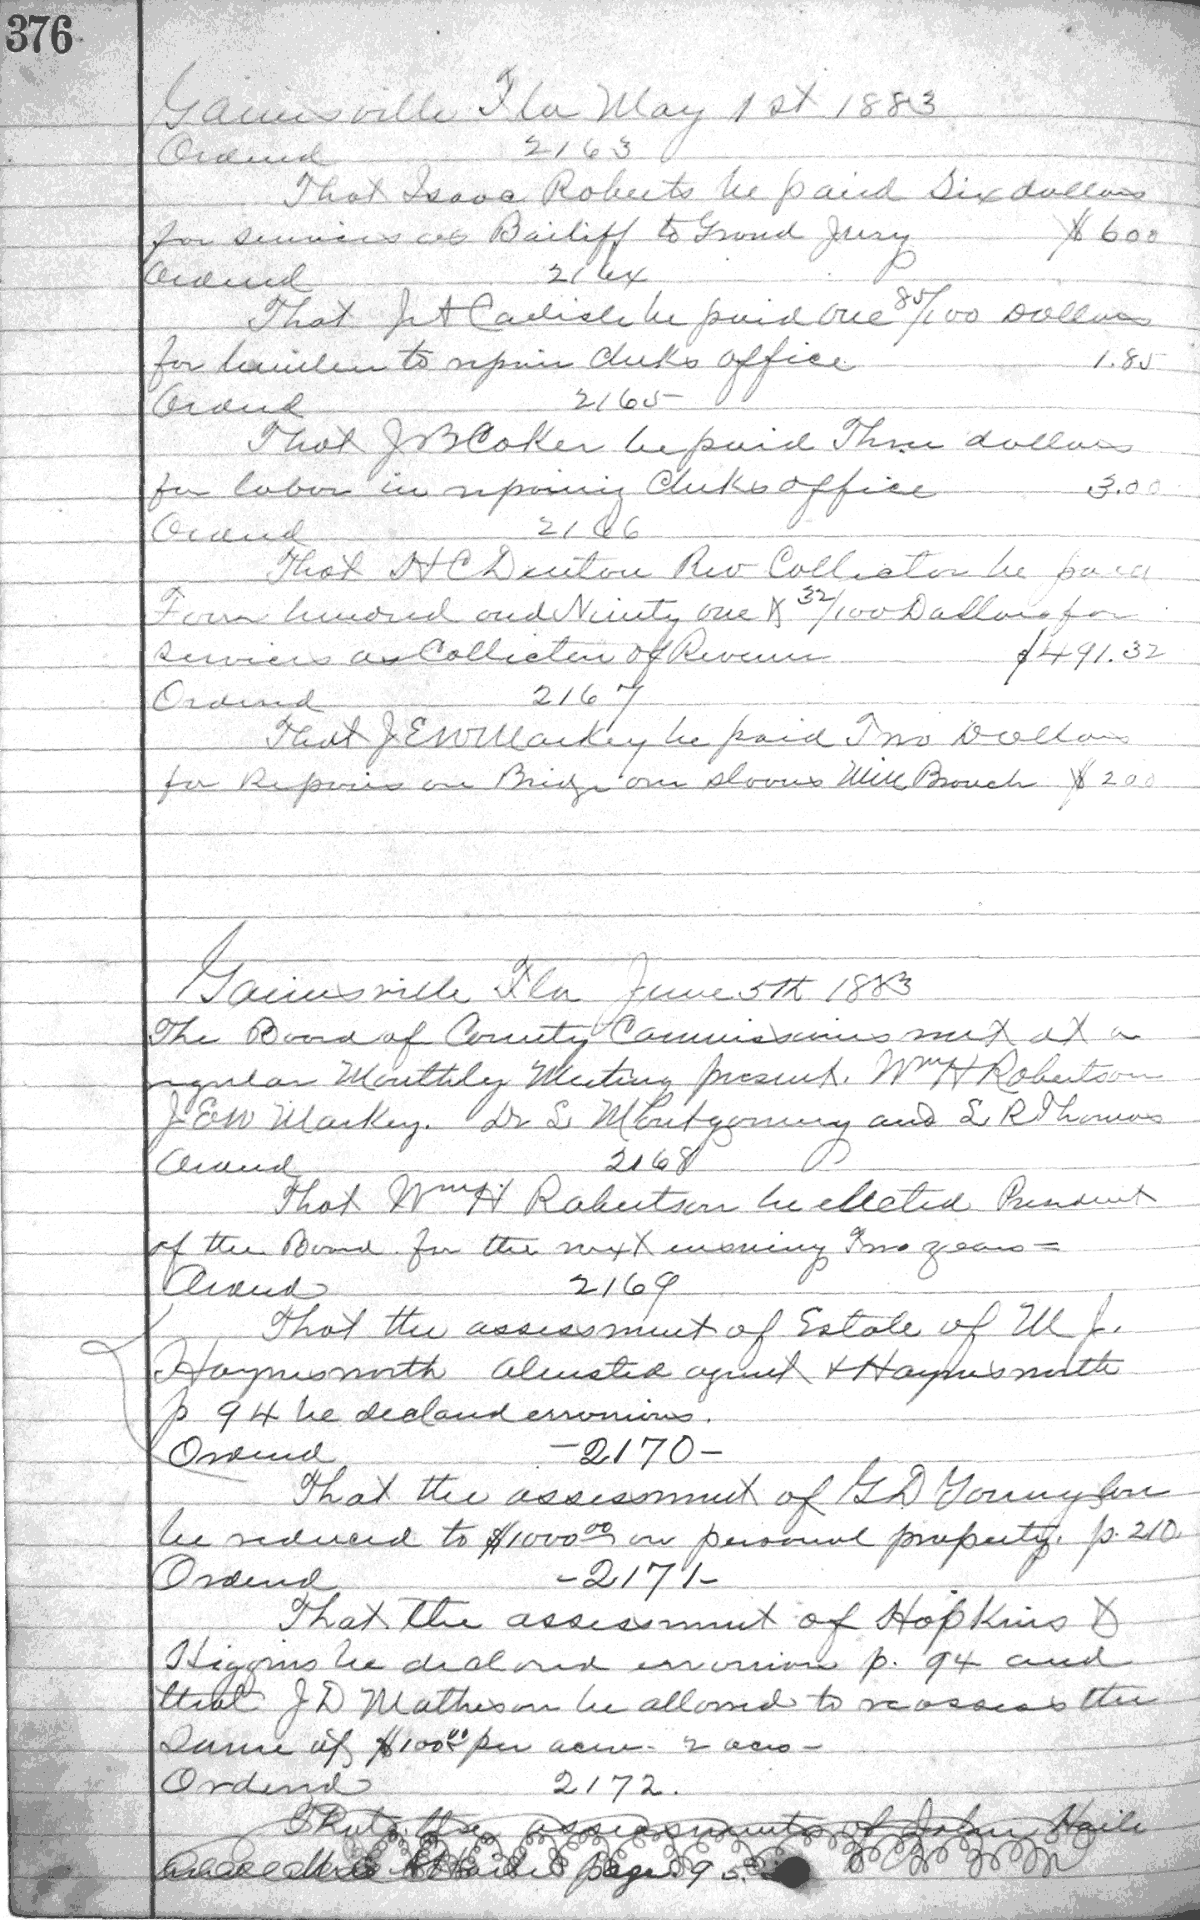 376
Gainesville Fla May 1st 1883
Ordered 2163
That Isaac Roberts be paid Six dollars
for services as Bailiff to Grand Jury $600
Ordered 2164
That J A Carlisle be paid One 85/100 Dollars
for lumber to repair Clerks office 1.85
Ordered 2165
That J B Coker be paid Three dollars
for labor in reparing Clerks office 3.00
Ordered 2166
That H C Denton Rev Collector be paid
Four hundred and Ninety one & 32/100 Dollars for
services as Collector of Revenue $491.32
Ordered 2167
That J E W Markey be paid Two Dollars
for Repairs on Bridge over Mill Branch $200
Gainesville Fla June 5th 1883
The Board of County Commissioners met at a
regular Monthly Meeting present. Wm H Robertson
J E W Markey. Dr L Montgomery and L R Thomas
Ordered 2168
That Wm H Robertson be elected President
of the Board for the next ensuing Two years =
Ordered 2169
That the assessment of Estate of M J.
Haynesworth agent & Haynesworth
p 94 be declared erronious.
Ordered -2170-
That the assessment of G D
be reduced to $1000 00 on personal property. p. 210
Ordered -2171-
That the assessment of Hopkins &
Higgins be declared erronious p. 94 and
that J D Matheson be allowed to reassess the
same at $100 00 per acre - 2 acres -
Ordered 2172.
That the assessments of John Haile
page 95